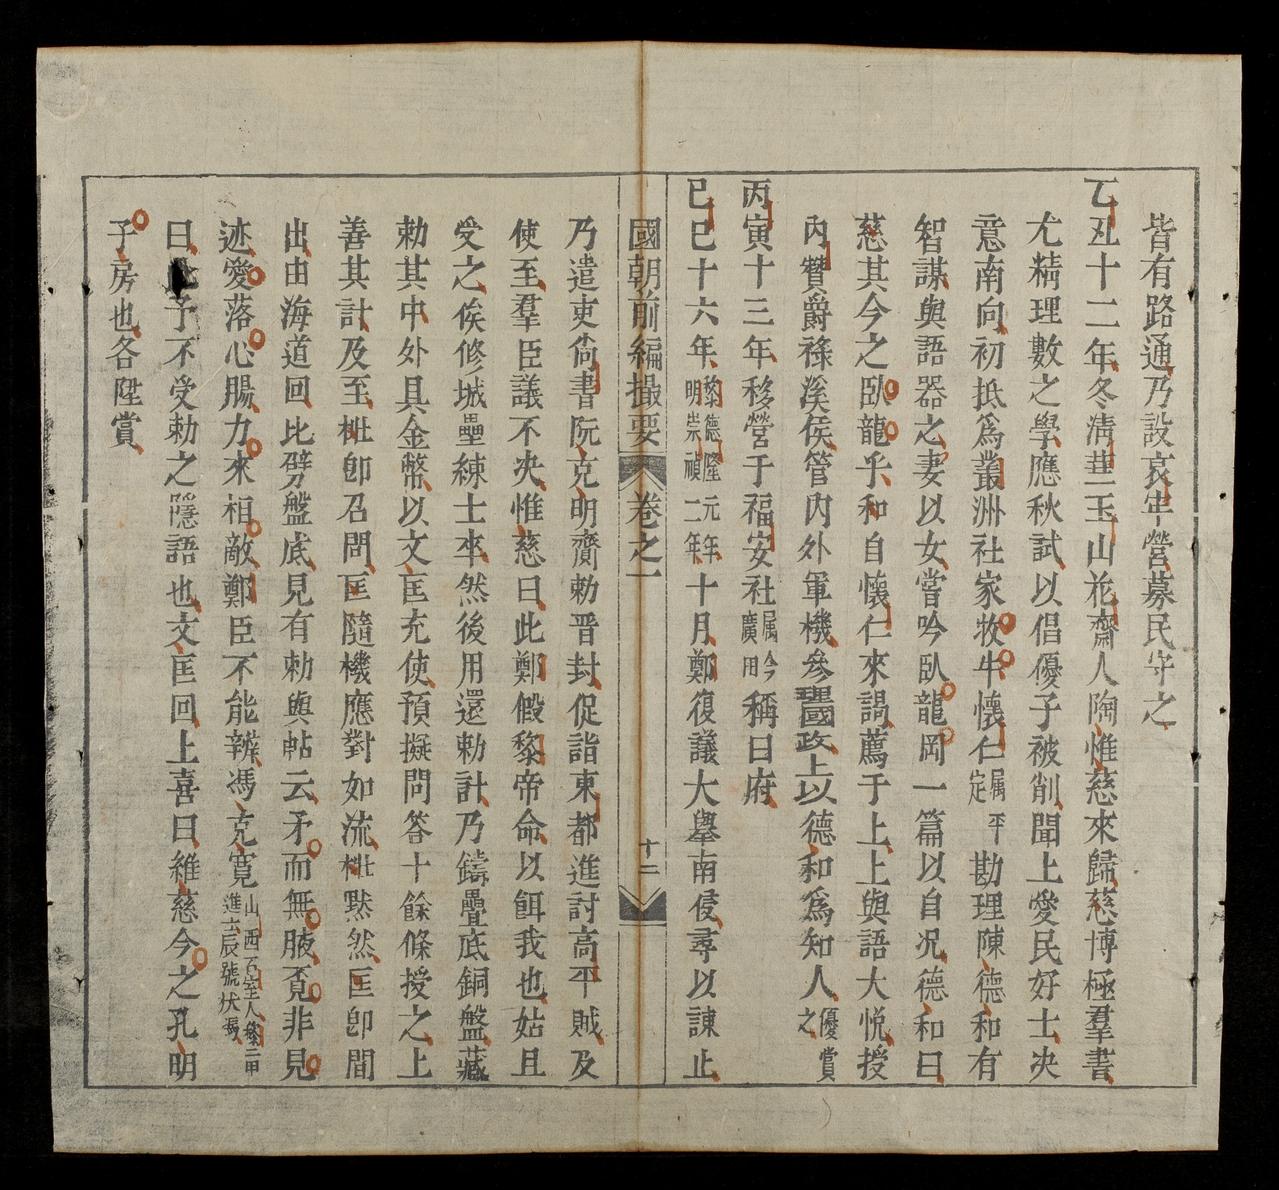 皆有路通乃設哀牢營募民守之
乙丑十二年冬淸華玉山花齋人陶惟慈來歸慈博極羣書
尤精理數之學應秋試以倡優子被削聞上愛民好士決
意南向初抵爲叢洲社家牧牛懷仁属平定勘理陳德和有
智謀與語器之妻以女嘗吟臥龍岡一篇以自况德和曰
慈其今之臥龍乎和自懷仁來謁薦于上上與語大悅授
內贊爵祿溪侯管內外軍機參理國政上以德和爲知人優賞之
丙寅十三年移營于福安社属今廣田稱曰府
己巳十六年黎德隆元年明崇禎二年十月鄭復議大擧南侵尋以諫止
國朝前編撮要 卷之一 十二
乃遣吏尙書阮克明齎勅晋封促詣東都進討高平賊及
使至羣臣議不决惟慈曰此鄭假黎帝命以餌我也姑且
受之俟修城壘練士卒然後用還勅計乃鑄疊底銅盤藏
勅其中外具金幣以文匡充使預擬問答十餘條授之上
善其計及至梉卽召問匡隨機應對如流梉默然匡卽間
出由海道回比劈盤底見有勅與帖云矛而無腋覔非見
迹愛落心腸力來相敵鄭臣不能辨馮克寬山西石室人黎二甲進士辰號狀馮
曰 予不受勅之隱語也文匡回上喜曰維慈今之孔明
子房也各陞賞